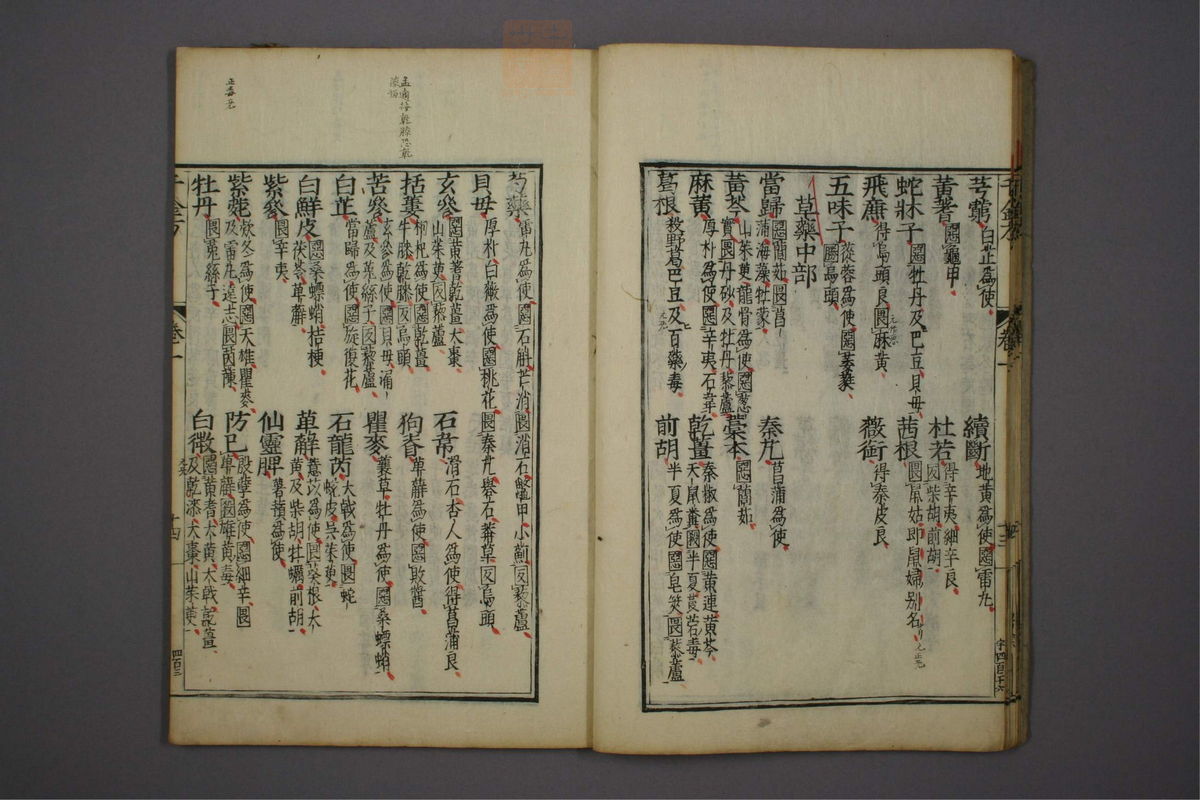 芎藭 白芷爲使 續斷 地黃爲使 惡雷丸
黃耆 惡龜甲 杜若 得辛夷細辛良 反柴胡前胡
蛇牀子 惡牡丹及巴豆貝母 茜根 畏鼠姑即鼠婦別名
飛廉 得烏頭良 惡麻黃 薇銜 得秦皮良
五味子 蓯蓉爲使 惡萎蕤 勝烏頭
草藥中部
當歸 惡䕡茹 畏菖蒲海藻牡蒙 秦艽 菖蒲爲使
黃芩 山茱萸龍骨爲使 惡葱實 畏丹砂及牡丹藜蘆 藁本 惡䕡茹
麻黃 厚朴爲使 惡辛夷石韋 乾薑 秦椒爲使 惡黃連黃芩天鼠糞 殺半夏莨菪毒
葛根 殺野葛巴豆及百藥毒 前胡 半夏爲使 惡皂莢 畏藜蘆
卷一
芍藥 雷丸爲使 惡石斛芒消 畏消石鱉甲小薊 反藜蘆
貝母 厚朴白薇爲使 惡桃花 畏秦艽礜石莽草 反烏頭
玄參 惡黃耆乾薑大棗山茱萸 反藜蘆 石韋 滑石杏人爲使 得菖蒲良
括蔞 枸杞爲使 惡乾薑 畏牛膝乾膝 反烏頭 狗脊 萆薢爲使 惡敗醬
苦參 玄參爲使 惡貝母漏蘆及菟絲子 反藜蘆 瞿麥 蘘草牡丹爲使 惡桑螵蛸
白芷 當歸爲使 惡旋復花 石龍芮 大戟爲使 畏蛇蛻皮吳茱萸
白鮮皮 惡桑螵蛸桔梗茯苓萆薢 萆薢 薏苡爲使 畏葵根大黃及柴胡牡蠣前胡
紫參 畏辛夷 仙靈脾 薯蕷爲使
紫菀 欵冬爲使 惡天雄瞿麥及雷丸遠志 畏茵蔯 防已 殷孽爲使 惡細辛 畏萆薢 殺雄黃毒
牡丹 畏菟絲子 白薇 惡黃耆大黃大戟乾薑及乾漆大棗山茱萸
卷一
十四